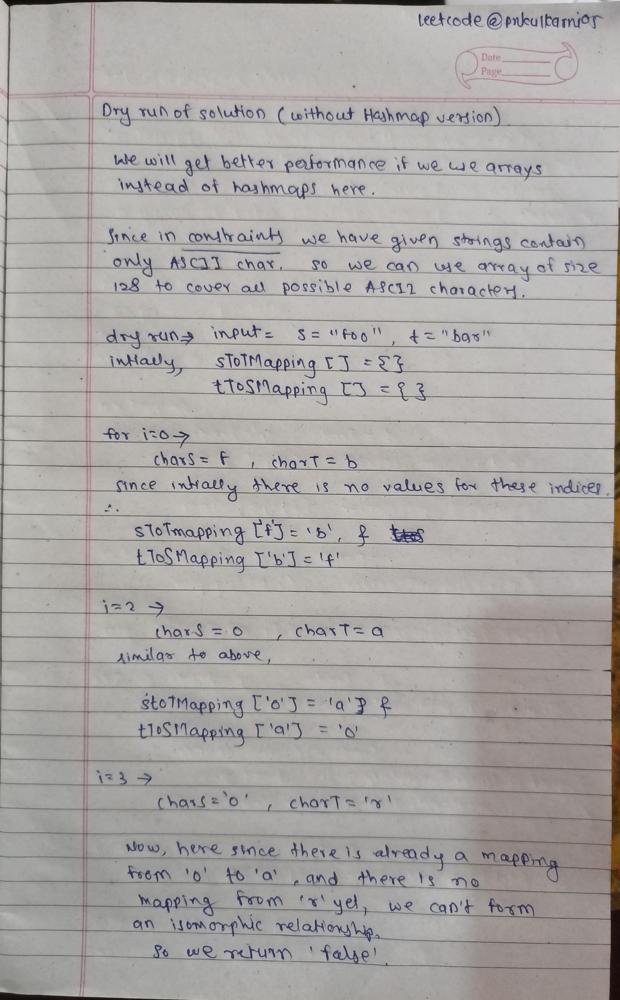 leetcode@pnkulkarni05
Date
Page
Dry run of solution (without Hashmap version)
We will get better performance if we use arrays
instead of hashmaps here.
Since in constraints we have given strings contain
only ASCII char. so we can use array of size
128 to cover all possible ASCII characters.
dry run→ input = s = "foo", t = "bar"
intially, sToTMapping [ ] = { }
tToSMapping [ ] = { }
for i=0 →
charS = f , charT = b
since intially there is no values for these indices.
∴
sToTmapping ['f'] = 'b', &
tToSMapping ['b'] = 'f'
i=2 →
charS = o , charT = a
similar to above,
stoTMapping ['o'] = 'a' &
tToSMapping ['a'] = 'o'
i=3 →
charS = 'o' , charT = 'r'
Now, here since there is already a mapping
from 'o' to 'a', and there is no
mapping from 'r' yet, we can't form
an isomorphic relationship.
So we return 'false'.